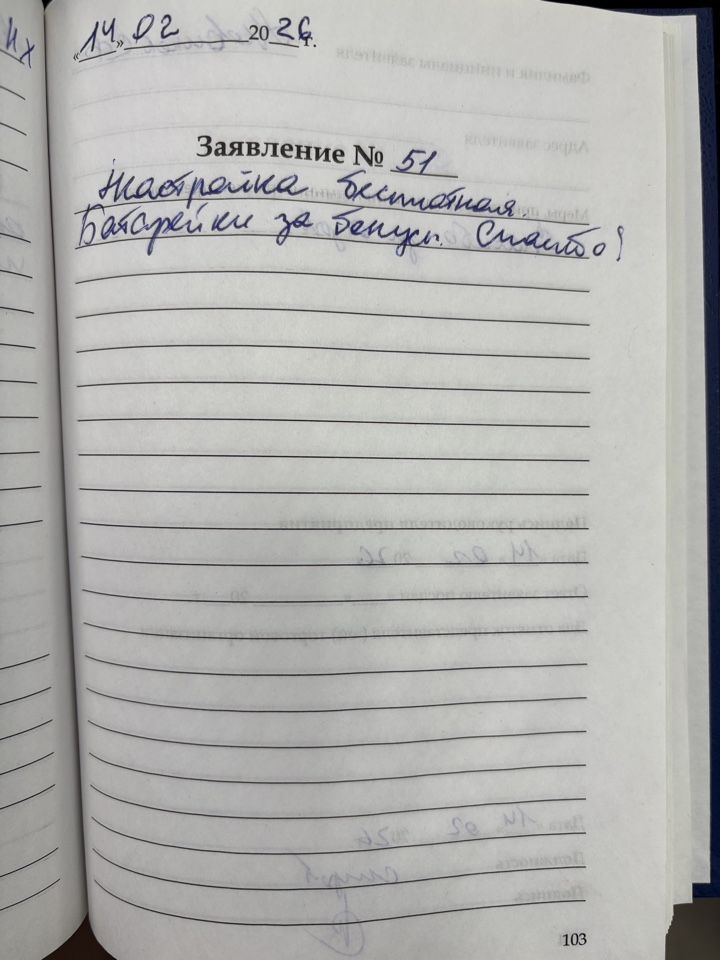 их
«14» 02 2026 г.
Заявление № 51
Настройка бесплатная.
Батарейки за бонусы. Спасибо!
103